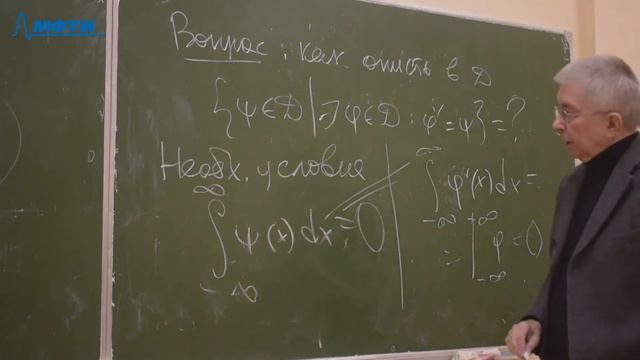 МФТИ
Вопрос: как описать в D
{ψ∈D | ∃ φ∈D : φ' = ψ} = ?
Необх. условие
∫_{-∞}^{∞} ψ(x) dx = 0
∫_{-∞}^{∞} φ'(x) dx =
= |_{-∞}^{+∞} φ = 0